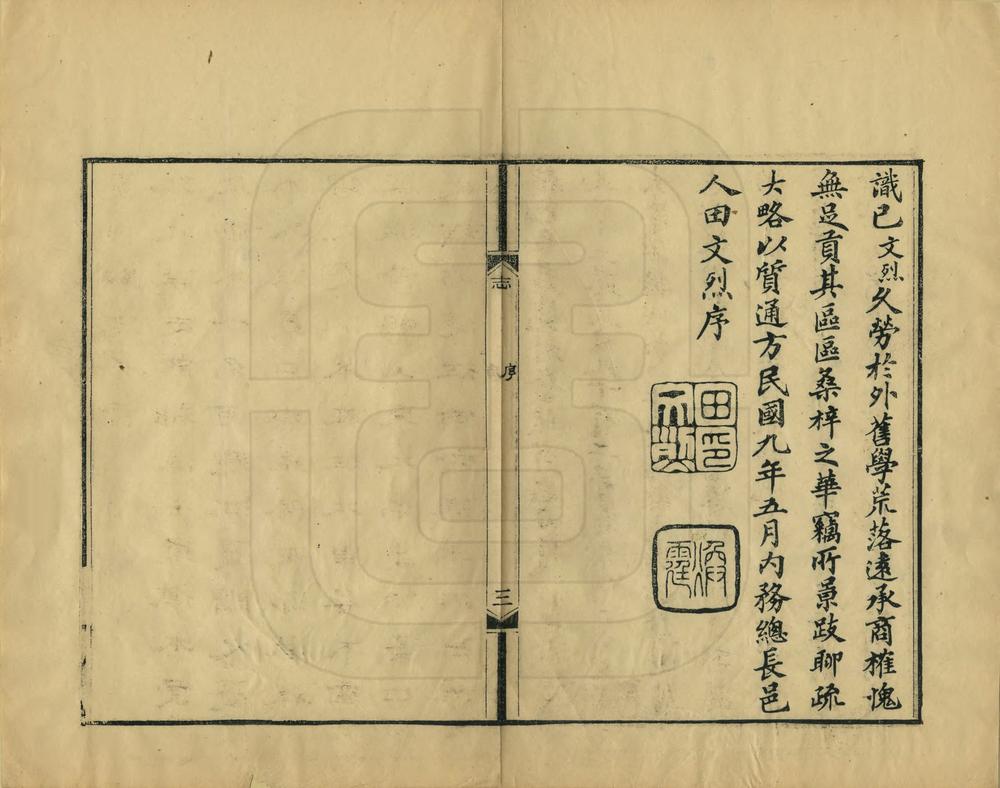 識已文烈久勞於外舊學荒落遠承商榷愧
無足貢其區區桑梓之華竊所景跂聊疏
大略以質通方民國九年五月內務總長邑
人田文烈序
田文烈印
志
序
三